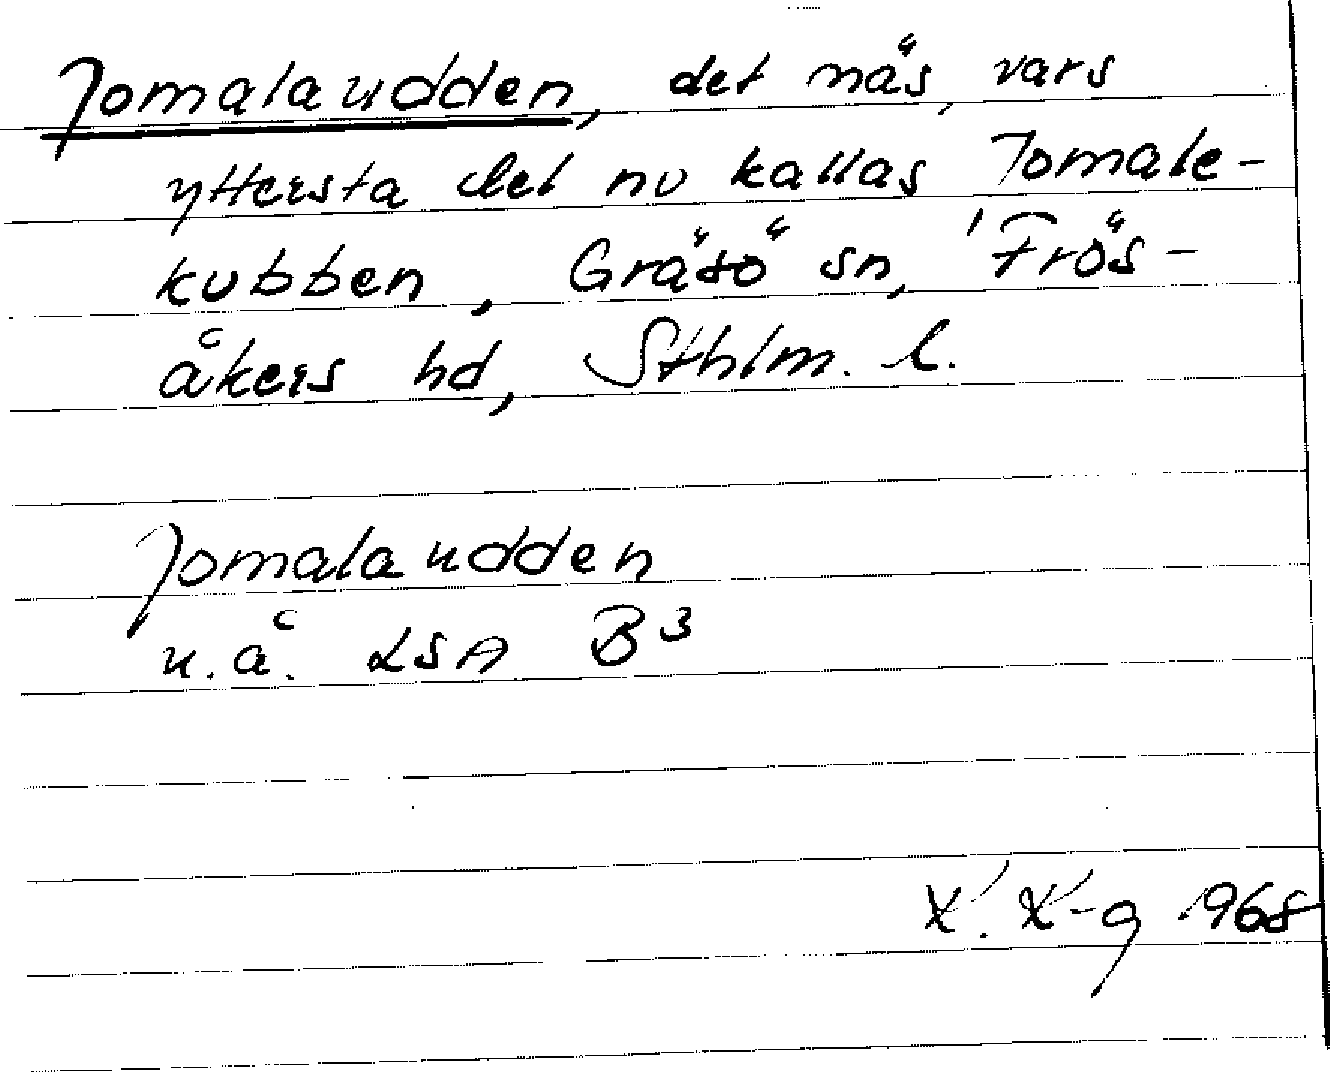 Jomalaudden, det näs, vars
yttersta del nu kallas Jomale-
kubben, Gräsö sn, Frös-
åkers hd, Sthlm. l.
Jomalaudden
u.å. LSA B3
1968